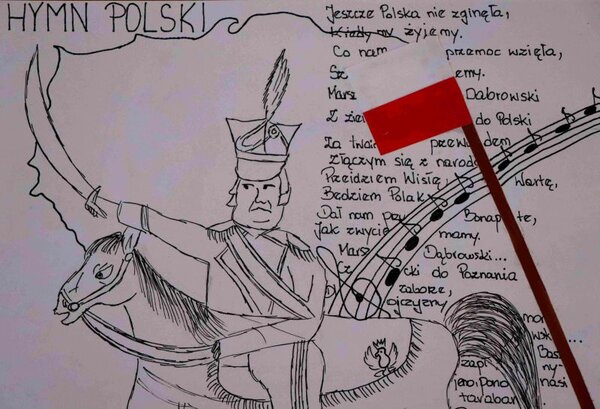 HYMN POLSKI
Jeszcze Polska nie zginęła,
Kiedy my żyjemy.
Co nam przemoc wzięła,
Sz emy.
Marsz Dąbrowski
Z zie do Polski
Za twoim przewodem
Złączym się z narod
Przejdziem Wisłę, Wartę,
Będziem Polak
Dał nam prz Bonaparte,
Jak zwycię mamy.
Marsz Dąbrowski...
Cz cki do Poznania
zaborze,
ojczyzny
morze
wski...
Bas
zapł ny-
jeno, Pono nasi
taraban